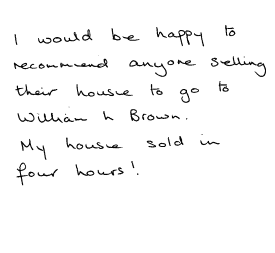 I would be happy to
recommend anyone selling
their house to go to
William h Brown.
My house sold in
four hours!